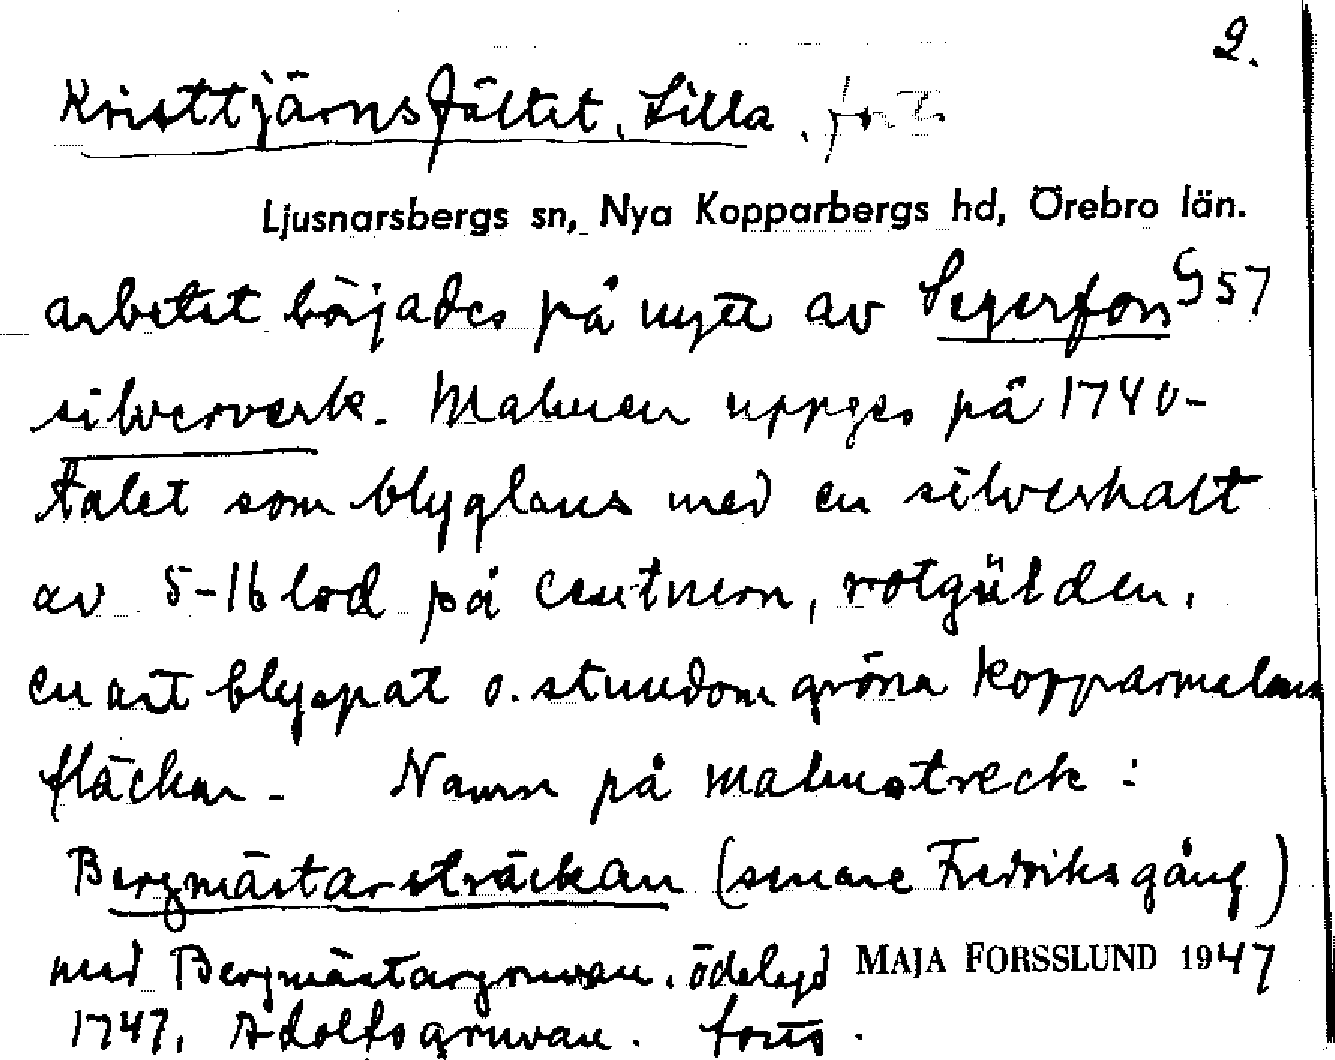 2.
Kristtjärnsfältet, Lilla, forts
Ljusnarsbergs sn, Nya Kopparbergs hd, Örebro län.
arbetet börjades på nytt av Segerfors G 57
silververk. Malmen uppges på 1740-
talet som blyglans med en silverhalt
av 5-16 lod på centnern, rotgülden,
en art blyspat o. stundom gröna kopparmalms
fläckar. Namn på malmstreck:
Bergmästarsträckan (senare Fredriksgång)
med Bergmästargruvan, ödelagd MAJA FORSSLUND 1947
1747, Adolfsgruvan. forts.